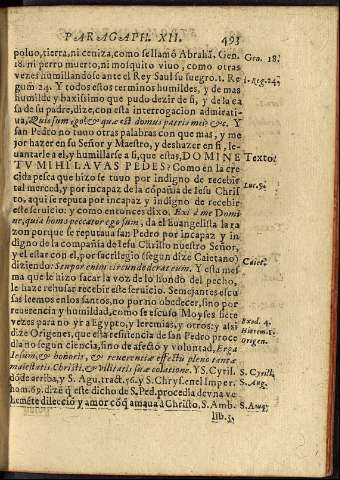 PARAGAPH. XII. 493
poluo, tierra, ni ceniza, como se llamô Abrahã. Gen. Gen. 18.
18. ni perro muerto, ni mosquito viuo, como otras
vezes humillandose ante el Rey Saul su suegro. 1. Re 1. Reg. 24.
gum 24. Y todos estos terminos humildes, y de mas
humilde y baxisimo que pudo dezir de si, y de la ca
sa de su padre, dize, con esta interrogacion admirati
ua, Quis sum ego? & quæ est domus patris mei? &c. Y
san Pedro no tuuo otras palabras con que mas, y me
jor hazer en su Señor y Maestro, y deshazer en si, le-
uantarle a el, y humillarse a si, que estas, DOMINE Texto.
TV MIHI LAVAS PEDES? Como en la cre
cida pesca que hizo se tuuo por indigno de recebir
tal merced, y por incapaz de la cõpañia de Iesu Chris Luc. 5.
to, aqui se reputa por incapaz y indigno de recebir
este seruicio: y como entonces dixo, Exi à me Domi
ne, quia homo peccator ego sum, da el Euangelista la ra
zon porque se reputaua san Pedro por incapaz y in
digno de la compañia de Iesu Christo nuestro Señor,
y el estar con el, por sacrilegio (segun dize Caietano) Caiet.
diziendo: Stupor enim circundederat eum. Y esta mes
ma que le hizo sacar la voz de lo hondo del pecho,
le haze rehusar recebir este seruicio. Semejantes escu
sas leemos en los santos, no por no obedecer, sino por
reuerencia y humildad, como se escusò Moyses siete
vezes para no yr a Egypto, y Ieremias, y otros: y assi Exod. 4.
dize Origenes, que esta resistencia de san Pedro proce Hierem. 1.
dia no segun ciencia, sino de afecto y voluntad, Erga Origen.
Iesum, & honoris, & reuerentiæ effectu pleno tantæ
maiestatis Christi, & vilitatis suæ colatione. Y S. Cyril. S. Cyrill.
dõde arriba, y S. Agu, tract. 56. y S. Chrysf en el Imper. S. Aug.
hom. 69. dize q̃ este dicho de S. Ped. procedia de vna ve
hemẽte dileccio y amor cõ q̃ amaua a Christo, S. Amb. S. Amb.
lib. 3.